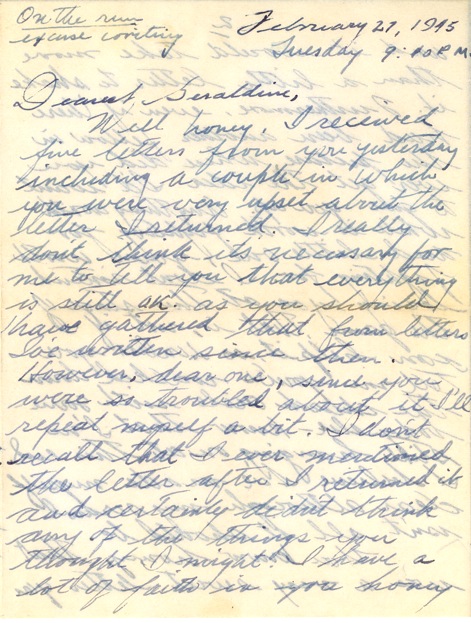 On the run
excuse writing
February 27, 1945
Tuesday 9:10 P.M.
Dearest Geraldine,
Well honey, I received
five letters from you yesterday
including a couple in which
you were very upset about the
letter I returned. I really
don't think its necessary for
me to tell you that everything
is still ok. as you should
have gathered that from letters
I've written since then.
However, dear one, since you
were so troubled about it I'll
repeat myself a bit. I don't
recall that I ever mentioned
the letter after I returned it
and certainly didn't think
any of the things you
thought I might. I have a
lot of faith in you honey